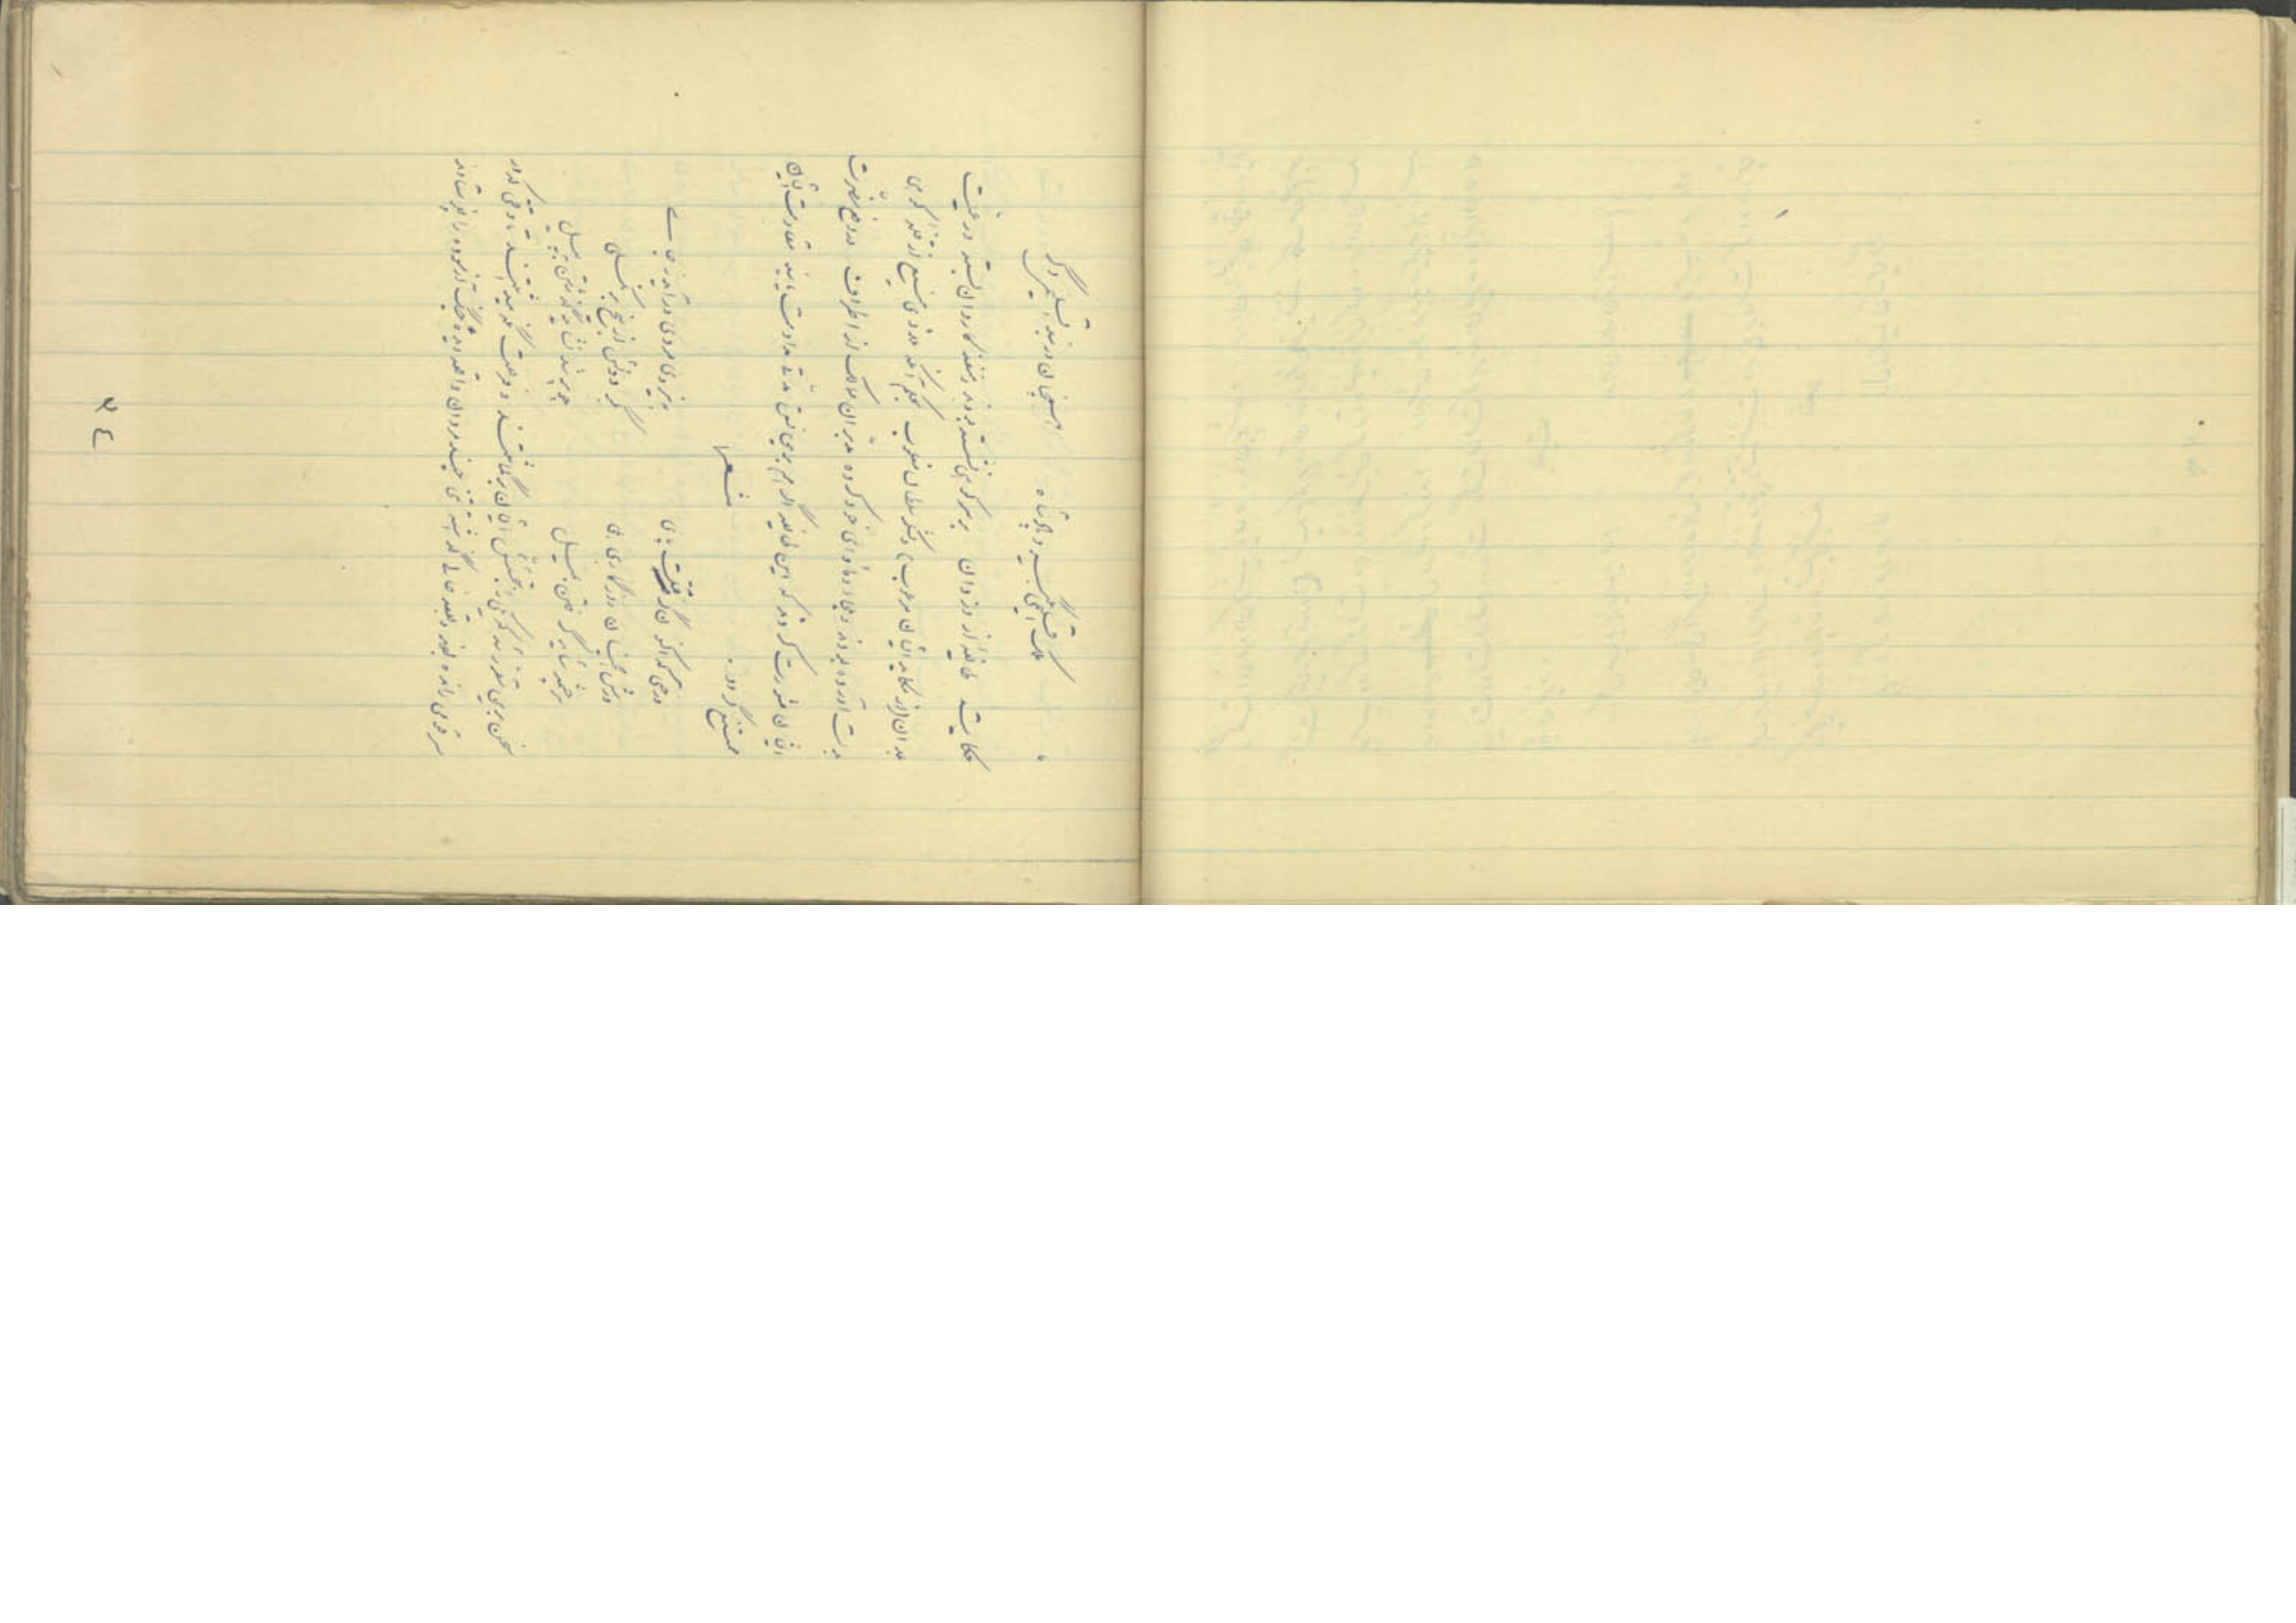 ملک اقلیمی بگیرد پادشاه    همچنان در بند اقلیمی دگر
حکایت طایفه از دزدان بر سر کوهی نشسته بودند و منفذ کاروان بسته و رعیت
بلدان از مکاید ایشان مرعوب و لشکر سلطان مغلوب بحکم آنکه ملاذی منیع از قله کوهی
بدست آورده بودند و ملجا و مأوای خود کرده مدبران ممالک از اطراف در دفع مضرت
ایشان مشورت کردند که این طایفه اگر هم برین نسق مدتی مداومت نمایند مقاومت با ایشان
ممتنع گردد.
شعر
درختی که اکنون گرفتست پای    بنیروی مردی برآید ز جای
ورش همچنان روزگاری هلی    بگردونش از بیخ بر نگسلی
سر چشمه شاید گرفتن ببیل    چو پر شد نشاید گذشتن به پیل
سخن برین مقرر شد که یکی را بتجسس ایشان برگماشتند و فرصت نگه میداشتند تا وقتی که بر
سر قومی رانده بودند و بقعه خالی گذاشته تنی چند مردان واقعه دیده جنگ آزموده را بفرستادند